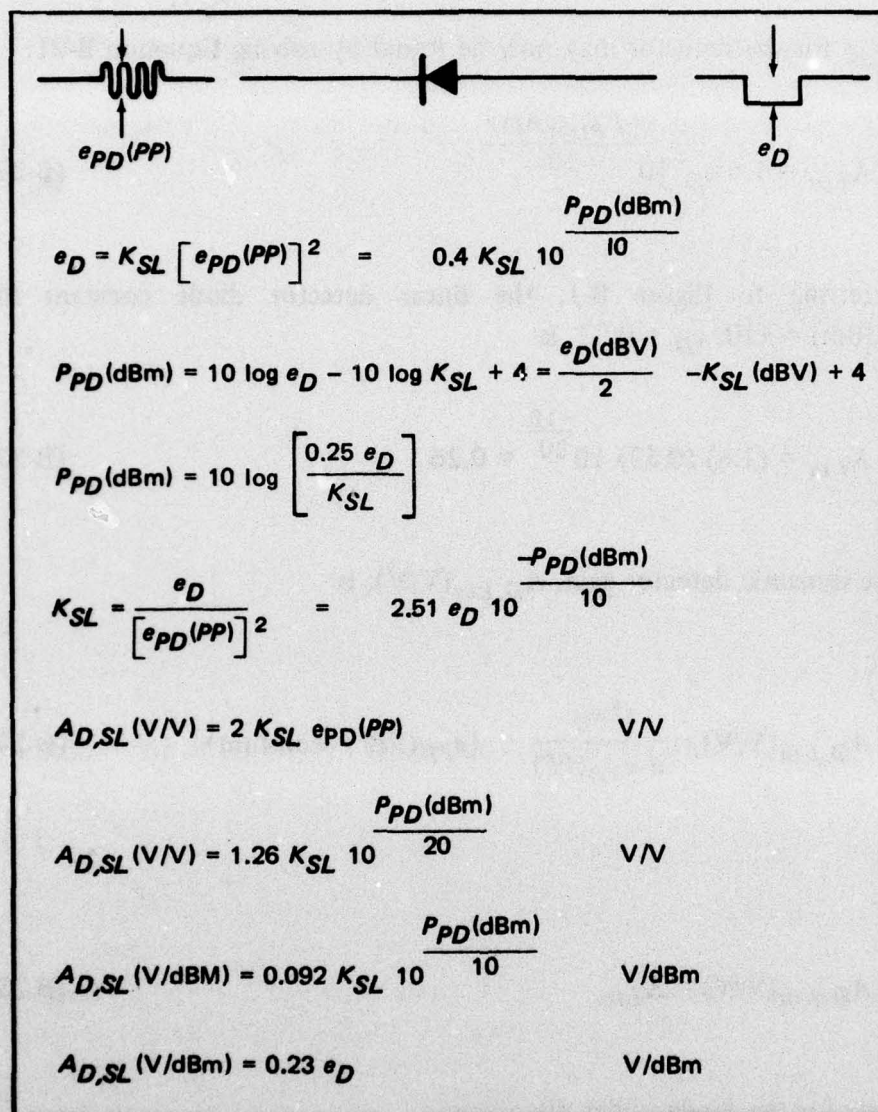 e_PD(PP)
e_D
e_D = K_SL [e_PD(PP)]^2 = 0.4 K_SL 10^(P_PD(dBm)/10)
P_PD(dBm) = 10 log e_D − 10 log K_SL + 4 = e_D(dBV)/2 −K_SL(dBV) + 4
P_PD(dBm) = 10 log [0.25 e_D / K_SL]
K_SL = e_D / [e_PD(PP)]^2 = 2.51 e_D 10^(−P_PD(dBm)/10)
A_D,SL(V/V) = 2 K_SL e_PD(PP) V/V
A_D,SL(V/V) = 1.26 K_SL 10^(P_PD(dBm)/20) V/V
A_D,SL(V/dBM) = 0.092 K_SL 10^(P_PD(dBm)/10) V/dBm
A_D,SL(V/dBm) = 0.23 e_D V/dBm